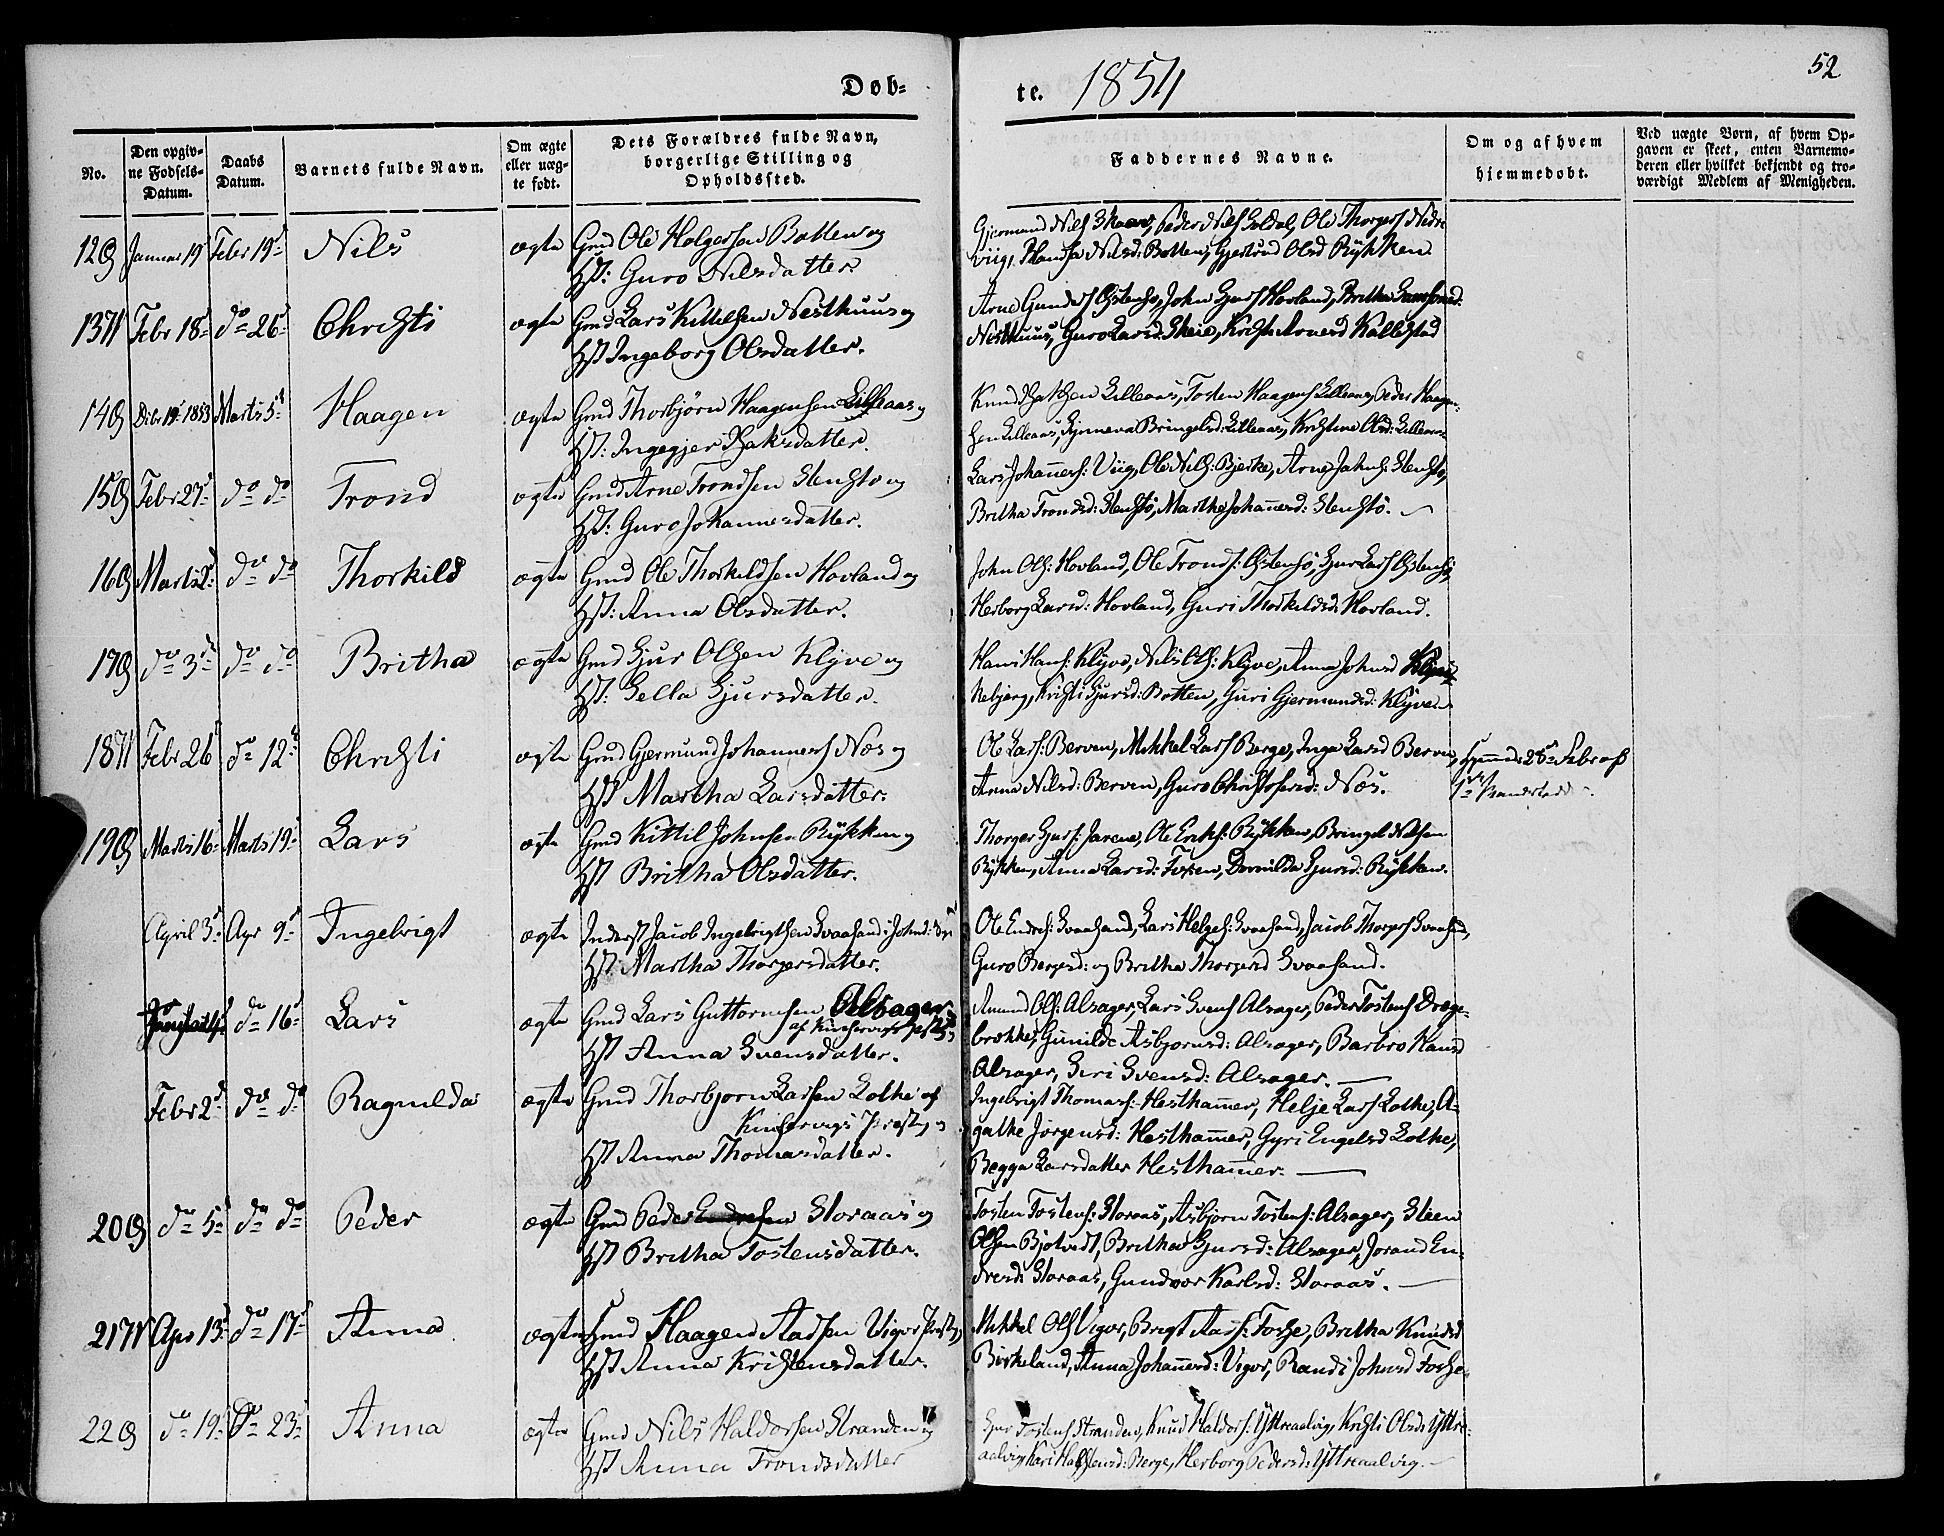 52
Døb-
te. 1854
No.
Den opgiv-
ne Fødsels-
Datum.
Daabs
Datum.
Barnets fulde Navn.
Om ægte
eller uæg-
te født.
Dets Forældres fulde Navn,
borgerlige Stilling og
Opholdssted.
Faddernes Navne.
Om og af hvem
hjemmedøbt.
Ved uægte Børn, af hvem Op-
gaven er skeet, enten Barnemo-
deren eller hvilket bekjendt og tro-
værdigt Medlem af Menigheden.
12 Januar 19 Febr 19 Nils ægte Gmd Ole Holgersen Botten og
Hst: Guro Nilsdatter.
Gjermund Nils Skaar, Peder Nils Soldal, Ole Thorgers Nedre
Viig, Nilsd: Botten, Gjertrud Olsd Rykken
13 Febr 18 do 26 Christi ægte Gmd Lars Kittelsen Nesthuus og
Hst Ingeborg Olsdatter.
Arne Hovland, Britha
Nesthuus, Guro Larsd: Skeie, Arnesd Kallestad
14 1853 Marts 5 Haagen ægte Gmd Thorbjørn Haagensen Lilleaas og
Hst: Ingegjer Isaksdatter.
Knud Isaksen Lilleaas, Tosten Haagens Lilleaas, Peder Haagen-
sen Lilleaas, Bringelsd: Lilleaas, Christine Olsd: Lilleaas
15 Febr 27 do do Trond ægte Gmd Arne Trondsen Stensto og
Hst: Guro Johannesdatter.
Lars Johannes: Viig, Ole Nils: Bjerke, Arne Johns: Stensto,
Britha Trondsd: Stensto, Martha Johannesd: Stensto.
16 Marts 2 do do Thorkild ægte Gmd Ole Thorkildsen Hovland og
Hst: Anna Olsdatter.
John Ols: Hovland, Ole Tronds: Lars
Herborg Larsd: Hovland, Guri Thorkildsd: Hovland.
17 do 3 do do Britha ægte Gmd Gjur Olsen Klyve og
Hst: Sella Gjursdatter.
Hans Hans: Klyve, Nils Ols: Klyve, Anna Johnsd
Christi Gjursd: Botten, Guri Gjermundsd: Klyve
18 Febr 26 do 12 Christi ægte Gmd Gjermund Johannes Næs og
Hst Martha Larsdatter.
Ole Lars: Berven, Mikkel Lars Berge, Inga Larsd Berven,
Anna Nilsd: Berven, Guro Christofersd: Næs.
28 Febr af
19 Marts 16 Marts 19 Lars ægte Gmd Kittil Johnsen Rykken og
Hst Britha Olsdatter.
Thorger Gjurs: Ole Eriks: Rykken, Bringel Nilsen
Rykken, Anna Larsd: Gjursd: Rykken.
April 3 Apr 9 Ingebrigt ægte Inderst Jacob Ingebrigtsen Svaasand
Hst Martha Thorgersdatter.
Ole Endres: Svaasand, Lars Helges: Svaasand, Jacob Thorgers Svaasand,
Guro og Britha Thorgersd Svaasand.
do 16 Lars ægte Gmd Lars Guttormsen Alsager
af Kinservigs
Hst Anna Svensdatter.
Amund Ols: Alsager, Lars Svens Alsager, Peder Tostens Dræge-
brække, Gunilde Asbjørnsd: Alsager, Barbro
Alsager, Siri Svensd: Alsager.
Febr 2 do do Ragnilda ægte Gmd Thorbjørn Larsen Lothe af
Kinservigs Præstg og
Hst Anna Thomasdatter.
Ingebrigt Thomas: Hesthammer, Helje Lars Lothe, A-
gathe Jørgensd: Hesthammer, Gyri Engelsd Lothe,
Begga Larsdatter Hesthammer.
20 do 5 do do Peder ægte Gmd Peder Storaas og
Hst Britha Tostensdatter.
Tosten Tostens: Storaas, Asbjørn Tostens: Alsager, Steen
Olsen Bjotvedt, Britha Gjursd: Alsager, Jorand En-
dresd: Storaas, Gundvor Karlsd: Storaas.
21 Apr 13 do 17 Anna ægte Gmd Haagen Aadsen Vigør
Hst Anna Kristensdatter.
Mikkel Ols Vigør, Brigt Aads: Fosse, Britha Knudsd
Birkeland, Anna Johannesd: Vigør, Randi Johnsd Fosse
22 do 19 do 23 Anna ægte Gmd Nils Haldorsen Stranden og
Hst Anna Trondsdatter
Tostens Stranden, Knud Haldors: Ytreaalvig, Kristi Olsd: Ytre-
aalvig, Kari Berge, Herborg Pedersd: Ytreaalvig.